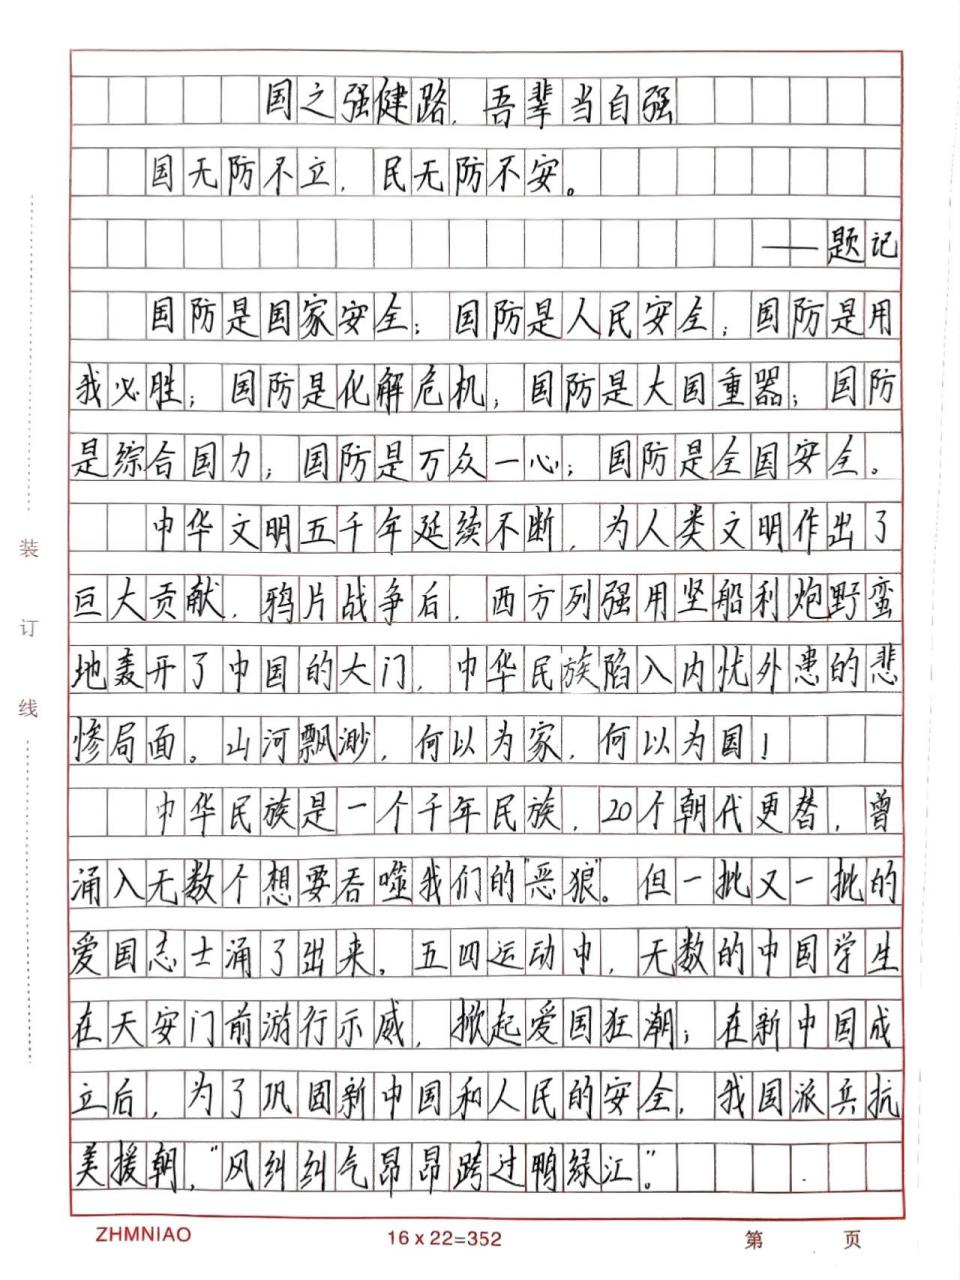 国之强健路，吾辈当自强
国无防不立，民无防不安。
——题记
国防是国家安全；国防是人民安全；国防是用
我必胜；国防是化解危机；国防是大国重器；国防
是综合国力；国防是万众一心；国防是全国安全。
中华文明五千年延续不断，为人类文明作出了
巨大贡献，鸦片战争后，西方列强用坚船利炮野蛮
地轰开了中国的大门，中华民族陷入内忧外患的悲
惨局面。山河飘渺，何以为家，何以为国！
中华民族是一个千年民族，20个朝代更替，曾
涌入无数个想要吞噬我们的"恶狼"。但一批又一批的
爱国志士涌了出来。五四运动中，无数的中国学生
在天安门前游行示威，掀起爱国狂潮；在新中国成
立后，为了巩固新中国和人民的安全，我国派兵抗
美援朝，"风纠纠气昂昂跨过鸭绿江"。
装
订
线
ZHMNIAO 16x22=352 第 页